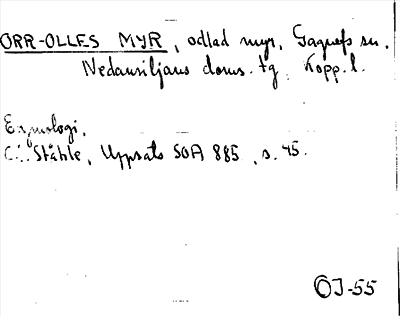 ORR-OLLES MYR, odlad myr, Gagnefs sn.
Nedansiljans doms. tg. Kopp. l.
Etymologi.
C.I. Ståhle, Uppsats SOA 885, s. 45.
OJ-55